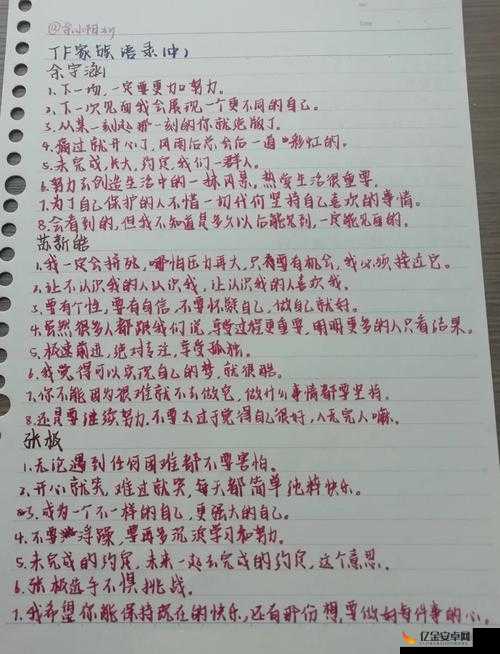 @余小阳
TF家族语录(中)
余宇涵
1.下一次,一定要更加努力。
2.下一次见面我会展现一个更不同的自己。
3.从某一刻起那一刻的你就绝版了。
4.痛过就开心了,风雨后总会后一道彩虹的。
5.未完成,长大,约定,我们一群人。
6.努力去创造生活中的一抹风景,热爱生活很重要。
7.为了自己保护的人不惜一切代价坚持自己喜欢的事情。
8.会看到的,但我不知道是多久以后能见到,一定能见面的。
苏新皓
1.我一定会拼死,哪怕压力再大,只要有机会,我必须接近它。
2.让不认识我的人认识我,让认识我的人喜欢我。
3.要有个性,要有自信,不要怀疑自己,做自己就好。
4.虽然很多人都跟我们说,享受过程更重要,但更多的人只看结果。
5.极速前进,绝对专注,享受孤独。
6.我觉得可以实现自己的梦,就很酷。
7.你不能因为很难就不去做它,做什么事情都要坚持。
8.还是要继续努力.不要太过于觉得自己很好,人无完人嘛。
张极
1.无论遇到任何困难都不要害怕。
2.开心就笑,难过就哭,每天都简单纯粹快乐。
3.成为一个不一样的自己,更强大的自己。
4.不要浮躁,要再多沉淀学习加努力。
5.未完成的约定,未来一起去完成的约定,这个意思。
6.张极选手不惧挑战。
7.我希望你能保持现在的快乐,还有那份想要做好每件事的心。
亿金安卓网